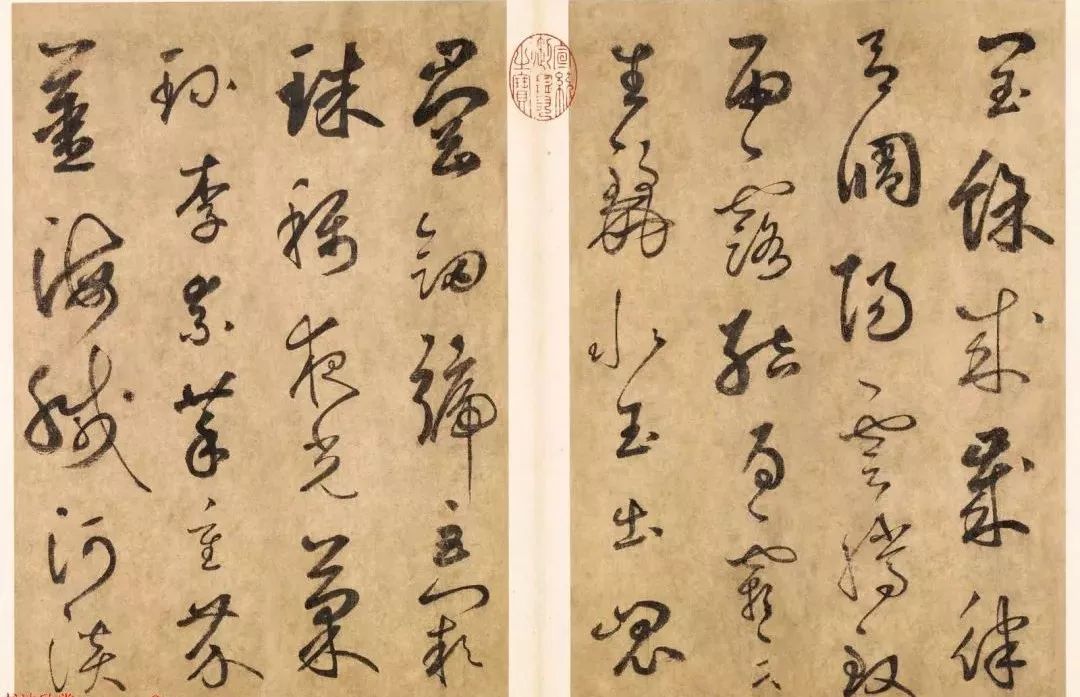 閏餘成歲律
呂調陽雲騰致
雨露結為霜金
生麗水玉出崑
崗劍號巨闕
珠稱夜光菓
珍李柰菜重芥
薑海鹹河淡
宣統御覽之寶